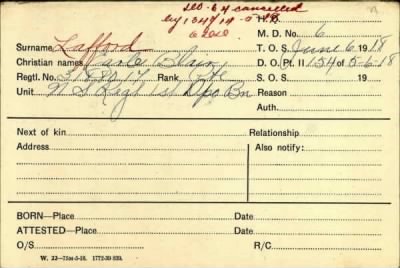 cancelled
by
M. D. No. 6
Surname Lafford
T. O. S. June 6 1918
Christian names Blair
D. O. Pt. II 154 of 5-6-18
Regtl. No. Rank Pte
S. O. S. 19
Unit N S Regt 1st Depo Bn
Reason
Auth.
Next of kin
Relationship
Address
Also notify:
BORN—Place Date
ATTESTED—Place Date
O/S R/C
W. 23—75M-5-18. 1772-39 839.